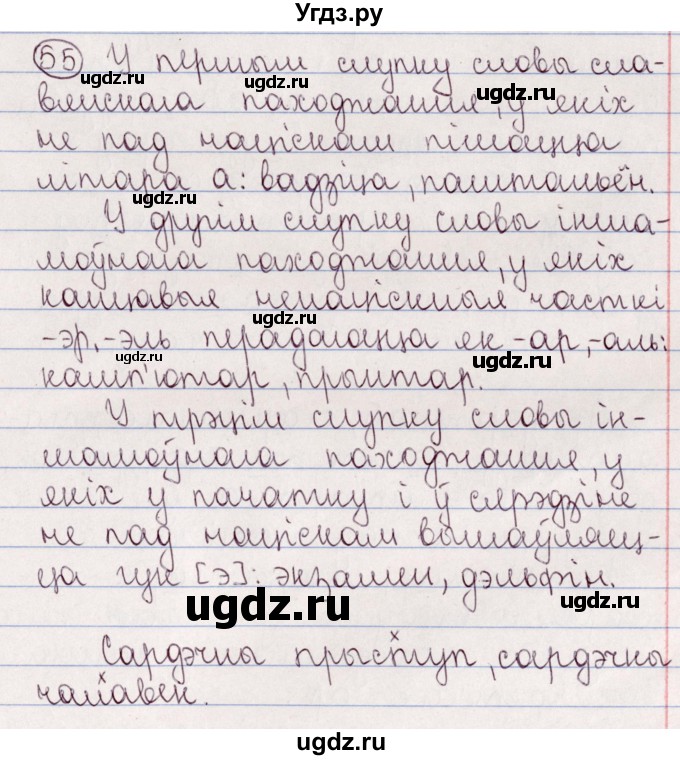 Угдз.ру
55 У першым слупку словы сла-
вянскага паходжання, у якіх
не пад націскам пішацца
літара а: вадзіца, паштальён.
У другім слупку словы інша-
моўнага паходжання, у якіх
канцавыя ненаціскныя часткі
-эр, -эль перадаюцца як -ар, -аль:
камп'ютар, прынтар.
У трэцім слупку словы ін-
шамоўнага паходжання, у
якіх у пачатку і ў сярэдзіне
не пад націскам вымаўляец-
ца гук [э]: экзамен, дэльфін.
Сардэчны прыступ, сардэчны
чалавек.
ugdz.ru
ugdz.ru
ugdz.ru
ugdz.ru
ugdz.ru
ugdz.ru
ugdz.ru
ugdz.ru
ugdz.ru
ugdz.ru
ugdz.ru